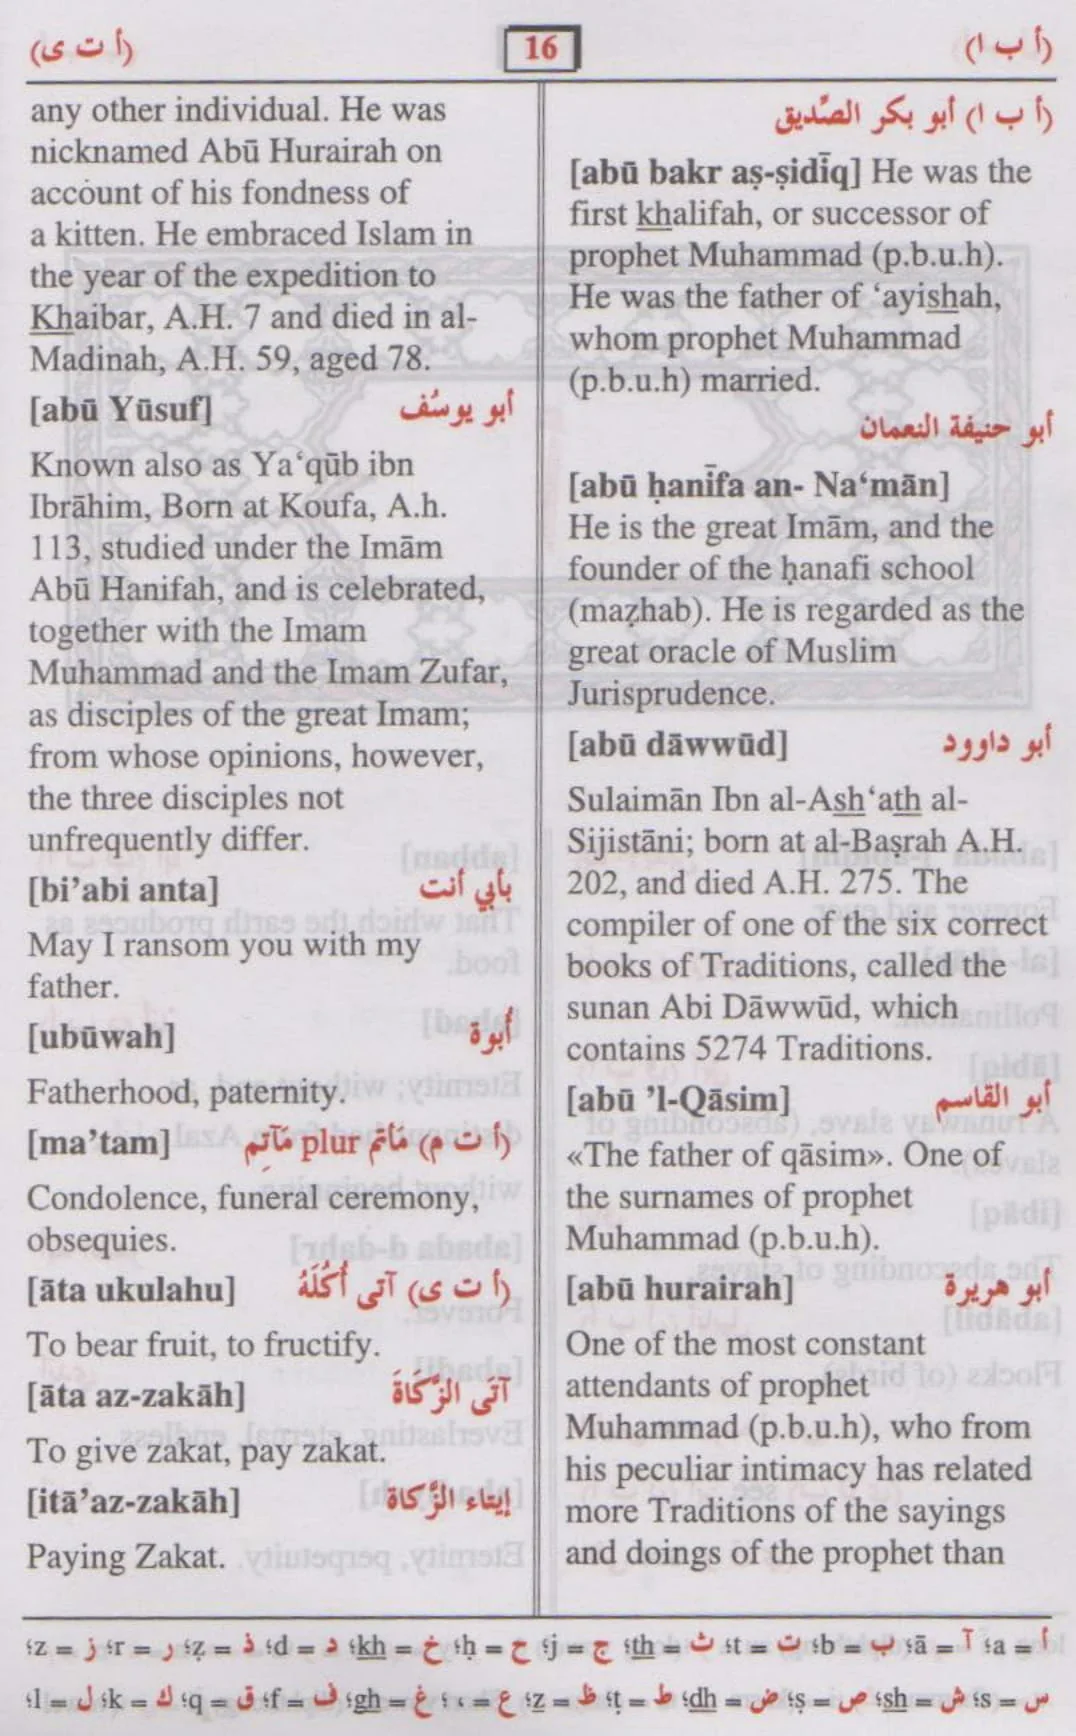 (أ ب ا)
16
(أ ت ى)
(أ ب ا) أبو بكر الصِّديق
[abū bakr aṣ-ṣidīq] He was the
first khalifah, or successor of
prophet Muhammad (p.b.u.h).
He was the father of ‘ayishah,
whom prophet Muhammad
(p.b.u.h) married.
أبو حنيفة النعمان
[abū ḥanīfa an- Na‘mān]
He is the great Imām, and the
founder of the ḥanafi school
(maẓhab). He is regarded as the
great oracle of Muslim
Jurisprudence.
[abū dāwwūd] أبو داوود
Sulaimān Ibn al-Ash‘ath al-
Sijistāni; born at al-Baṣrah A.H.
202, and died A.H. 275. The
compiler of one of the six correct
books of Traditions, called the
sunan Abi Dāwwūd, which
contains 5274 Traditions.
[abū ’l-Qāsim] أبو القاسم
«The father of qāsim». One of
the surnames of prophet
Muhammad (p.b.u.h).
[abū hurairah] أبو هريرة
One of the most constant
attendants of prophet
Muhammad (p.b.u.h), who from
his peculiar intimacy has related
more Traditions of the sayings
and doings of the prophet than
any other individual. He was
nicknamed Abū Hurairah on
account of his fondness of
a kitten. He embraced Islam in
the year of the expedition to
Khaibar, A.H. 7 and died in al-
Madinah, A.H. 59, aged 78.
[abū Yūsuf] أبو يوسُف
Known also as Ya‘qūb ibn
Ibrāhim, Born at Koufa, A.h.
113, studied under the Imām
Abū Hanifah, and is celebrated,
together with the Imam
Muhammad and the Imam Zufar,
as disciples of the great Imam;
from whose opinions, however,
the three disciples not
unfrequently differ.
[bi’abi anta] بأبي أنت
May I ransom you with my
father.
[ubūwah] أُبوة
Fatherhood, paternity.
[ma’tam] (أ ت م) مَاتم plur مَآتِم
Condolence, funeral ceremony,
obsequies.
[āta ukulahu] (أ ت ى) آتى أُكُلَهُ
To bear fruit, to fructify.
[āta az-zakāh] آتَى الزَّكَاةَ
To give zakat, pay zakat.
[itā’az-zakāh] إيتاء الزَّكاة
Paying Zakat.
أ = a؛ آ = ā؛ ب = b؛ ت = t؛ ث = th؛ ج = j؛ ح = ḥ؛ خ = kh؛ د = d؛ ذ = ẓ؛ ر = r؛ ز = z؛
س = s؛ ش = sh؛ ص = ṣ؛ ض = dh؛ ط = ṭ؛ ظ = z؛ ع = ‘؛ غ = gh؛ ف = f؛ ق = q؛ ك = k؛ ل = l؛